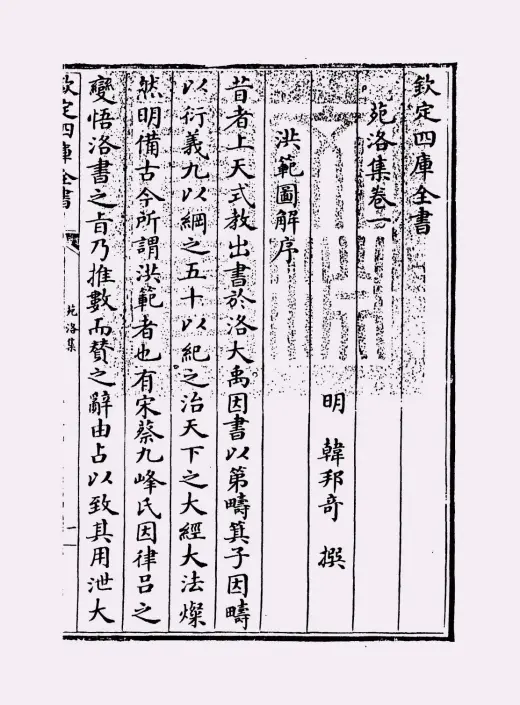 欽定四庫全書
苑洛集卷一
明 韓邦奇 撰
洪範圖解序
昔者上天式教出書於洛大禹因書以第疇箕子因疇
以衍義九以綱之五十以紀之治天下之大經大法燦
然明備古今所謂洪範者也有宋蔡九峰氏因律吕之
變悟洛書之旨乃推數而贊之辭由占以致其用泄大
欽定四庫全書
苑洛集
一